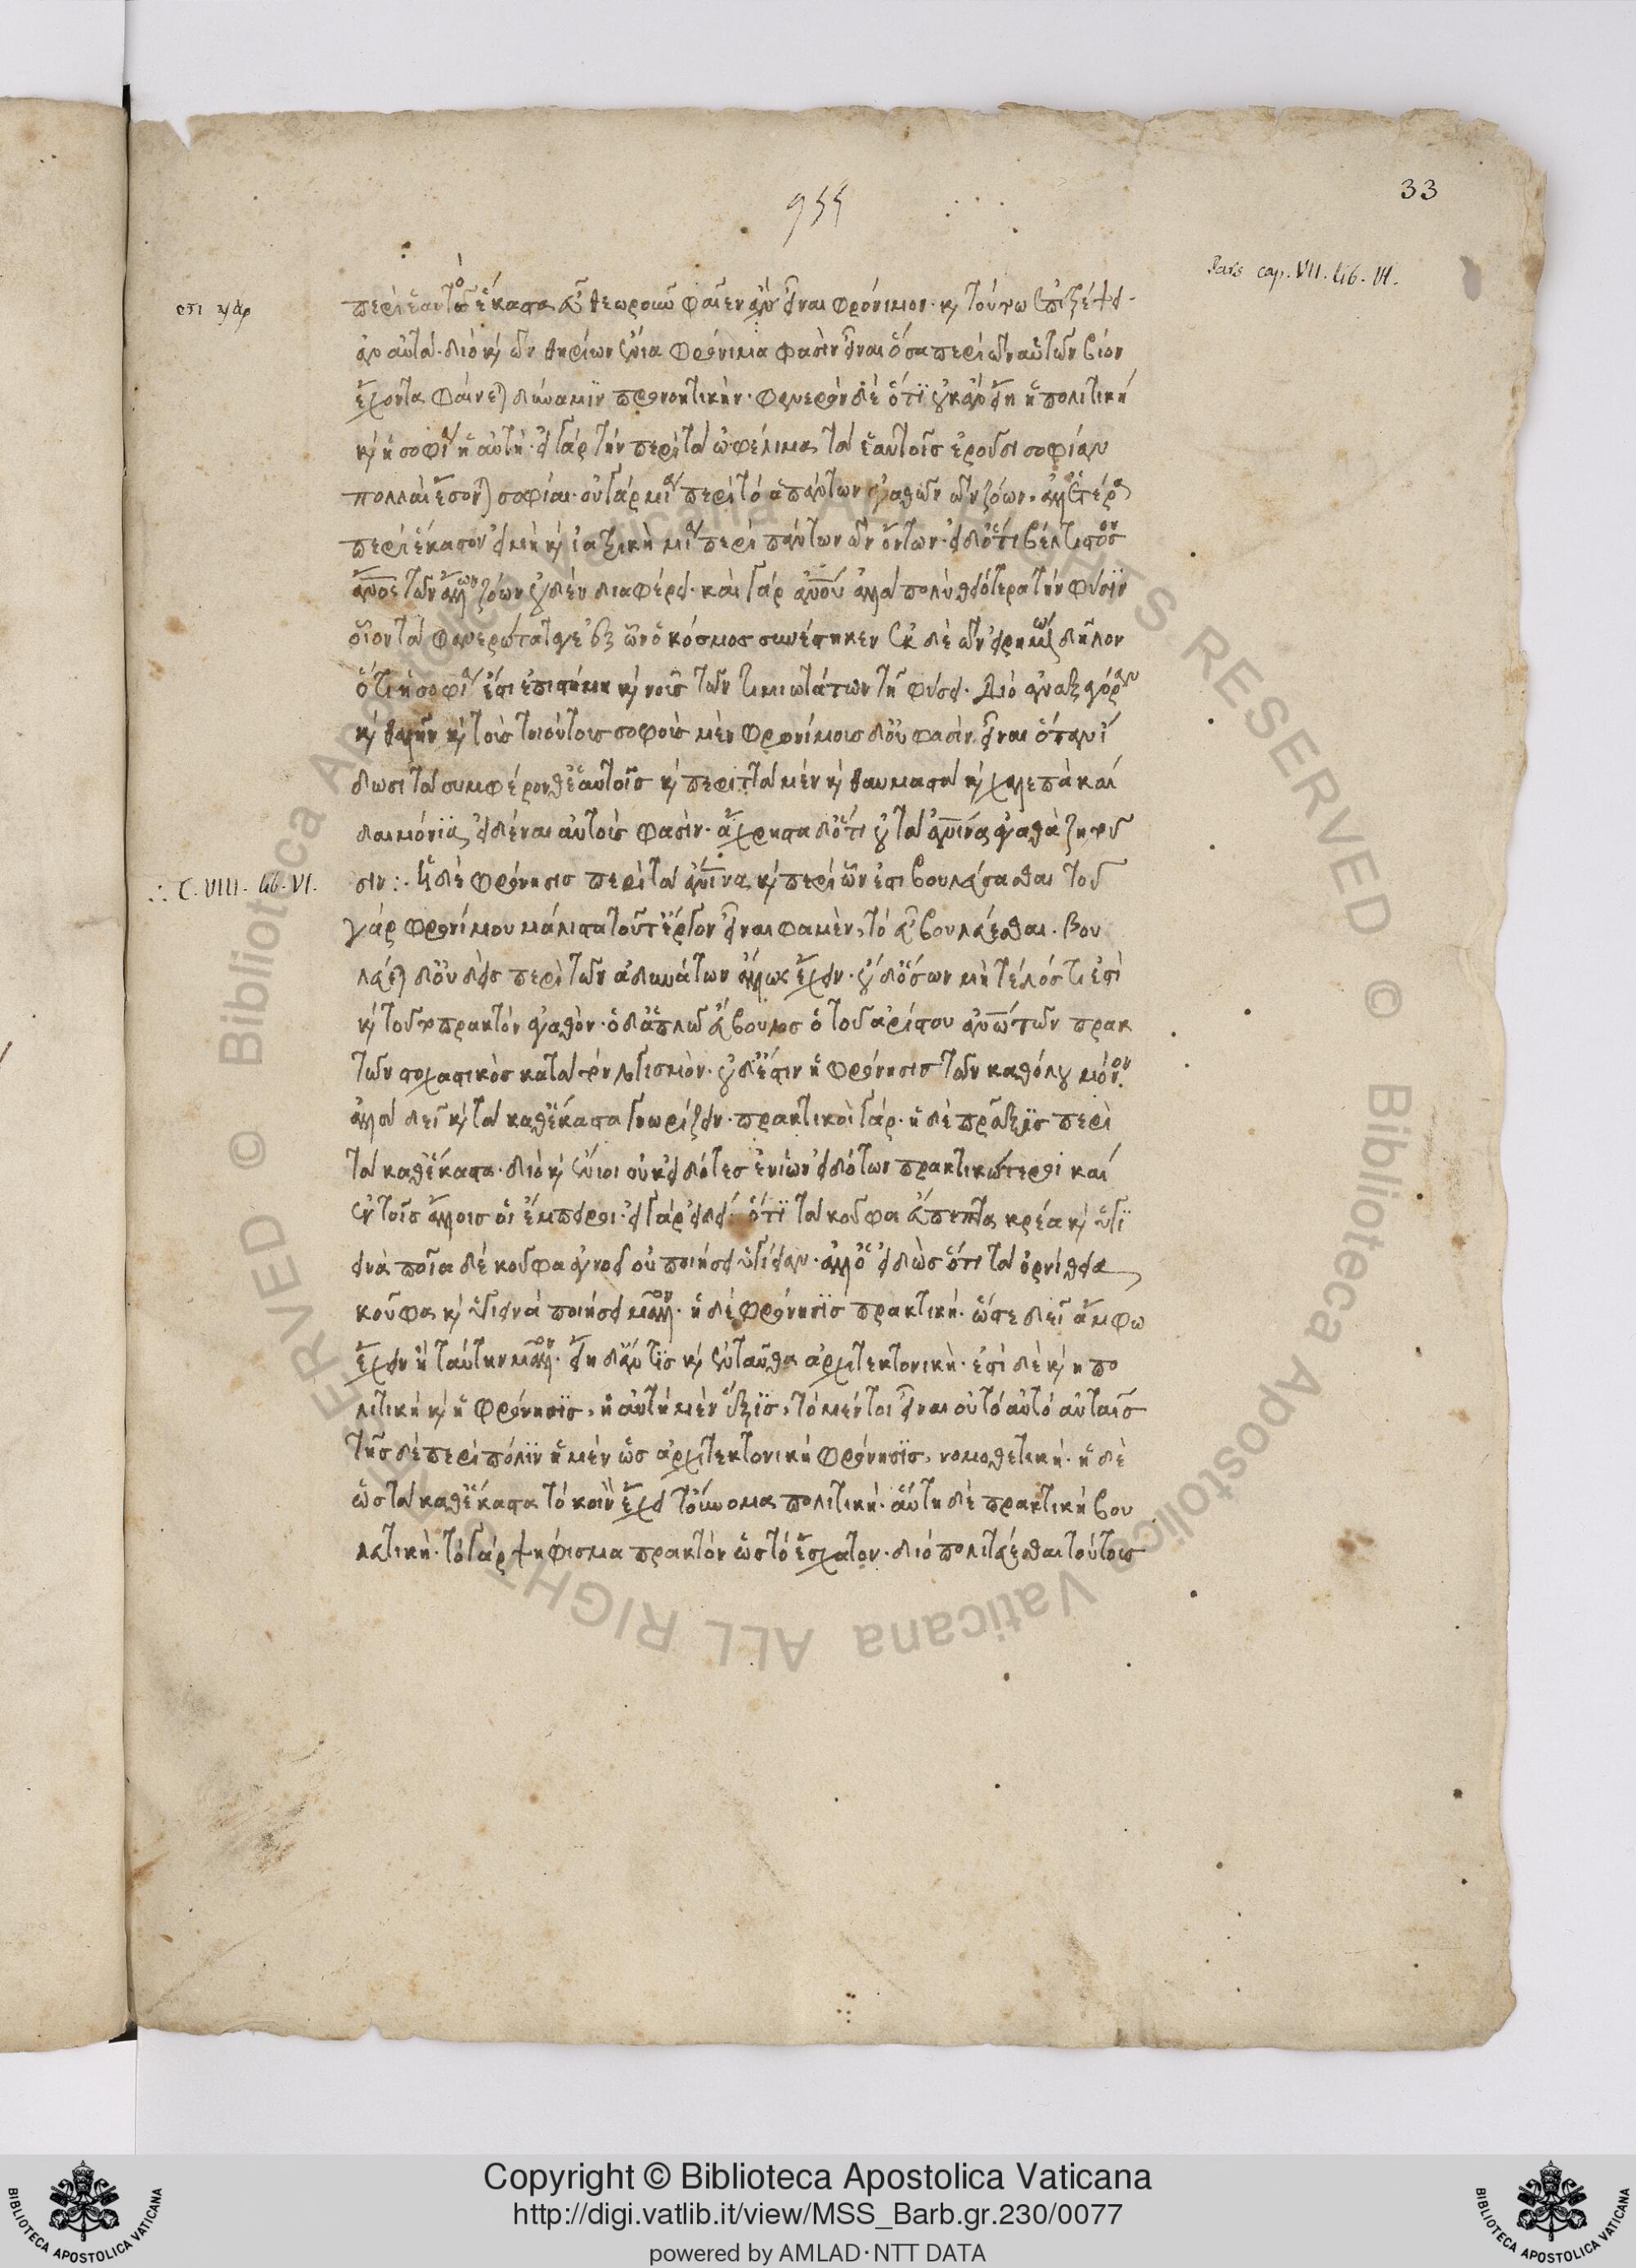 33
955
Pars cap. VII. lib. VI.
ετι γὰρ
περὶ ἑαυτὸ ἕκαστα εὖ θεωροῦν φαῖεν ἂν εἶναι φρόνιμον· καὶ τούτω ἐπιτρέψει
ἂν αὐτά· διὸ καὶ τῶν θηρίων ἔνια φρόνιμα φασὶν εἶναι ὅσα περὶ τὸν αὑτῶν βίον
ἔχοντα φαίνεται δύναμιν προνοητικήν· φανερὸν δὲ ὅτι οὐκ ἂν εἴη ἡ πολιτικὴ
καὶ ἡ σοφία ἡ αὐτή· εἰ γὰρ τὴν περὶ τὰ ὠφέλιμα τὰ ἑαυτοῖς ἐροῦσι σοφίαν
πολλαὶ ἔσονται σοφίαι· οὐ γὰρ μία περὶ τὸ ἁπάντων ἀγαθὸν τῶν ζώων· ἀλλ' ἑτέρα
περὶ ἕκαστον εἰ μὴ καὶ ἰατρικὴ μία περὶ πάντων τῶν ὄντων· εἰ δ' ὅτι βέλτιστον
ἄνος τῶν ἄλλων ζώων οὐδὲν διαφέρει· καὶ γὰρ ἀνου ἄλλα πολὺ θειότερα τὴν φύσιν
οἷον τὰ φανερώτατα γε ἐξ ὧν ὁ κόσμος συνέστηκεν ἐκ δὴ τῶν εἰρημένων δῆλον
ὅτι ἡ σοφία ἐστὶ ἐπιστήμη καὶ νοῦς τῶν τιμιωτάτων τῇ φύσει· Διὸ ἀναξαγόραν
καὶ θαλῆν καὶ τοὺς τοιούτους σοφοὺς μὲν φρονίμους δ' οὔ φασιν εἶναι ὅταν ἴ
δωσι τὰ συμφέρονθ' ἑαυτοῖς καὶ περιττὰ μὲν καὶ θαυμαστὰ καὶ χαλεπὰ καὶ
δαιμόνια εἰδέναι αὐτούς φασιν· ἄχρηστα δ' ὅτι οὐ τὰ ἀνινα ἀγαθὰ ζητοῦ
∴ C. VIII. lib. VI.
σιν :· Ἡ δὲ φρόνησις περὶ τὰ ἀνινα καὶ περὶ ὧν ἐστι βουλεύσασθαι τοῦ
γὰρ φρονίμου μάλιστα τοῦτ' ἔργον εἶναι φαμὲν, τὸ εὖ βουλεύεσθαι. Βου
λεύεται δ' οὐδεὶς περὶ τῶν ἀδυνάτων ἄλλως ἔχειν· οὐδ' ὅσων μὴ τέλος τι ἐστὶ
καὶ τοῦτο πρακτὸν ἀγαθὸν· ὁ δ' ἁπλῶς εὔβουλος ὁ τοῦ ἀρίστου ἀνω τῶν πρακ
τῶν στοχαστικὸς κατὰ τὸν λογισμὸν· οὐδ' ἔστιν ἡ φρόνησις τῶν καθόλου μόνον
ἀλλὰ δεῖ καὶ τὰ καθ' ἕκαστα γνωρίζειν· πρακτικὴ γάρ· ἡ δὲ πρᾶξις περὶ
τὰ καθ' ἕκαστα· διὸ καὶ ἔνιοι οὐκ εἰδότες ἐνίων εἰδότων πρακτικώτεροι καὶ
ἐν τοῖς ἄλλοις οἱ ἔμπειροι· εἰ γὰρ εἰδείη ὅτι τὰ κοῦφα εὔπεπτα κρέα καὶ ὑγι
εινὰ ποῖα δὲ κοῦφα ἀγνοεῖ οὐ ποιήσει ὑγίειαν· ἀλλ' ὁ εἰδὼς ὅτι τὰ ὀρνίθεια
κοῦφα καὶ ὑγιεινὰ ποιήσει μᾶλλον· ἡ δὲ φρόνησις πρακτική· ὥστε δεῖ ἄμφω
ἔχειν ἢ ταύτην μᾶλλον· εἴη δ' ἄν τις καὶ ἐνταῦθα ἀρχιτεκτονικὴ· ἐστὶ δὲ καὶ ἡ πο
λιτικὴ καὶ ἡ φρόνησις, ἡ αὐτὴ μὲν ἕξις, τὸ μέντοι εἶναι οὐ τὸ αὐτὸ αὐταῖς
τῆς δὲ περὶ πόλιν ἡ μὲν ὡς ἀρχιτεκτονικὴ φρόνησις, νομοθετική· ἡ δὲ
ὡς τὰ καθ' ἕκαστα τὸ κοινὸν ἔχει τοὔνομα πολιτική· αὕτη δὲ πρακτικὴ βου
λευτικὴ· τὸ γὰρ ψήφισμα πρακτὸν ὡς τὸ ἔσχατον· διὸ πολιτεύεσθαι τούτους
Copyright © Biblioteca Apostolica Vaticana
http://digi.vatlib.it/view/MSS_Barb.gr.230/0077
powered by AMLAD·NTT DATA